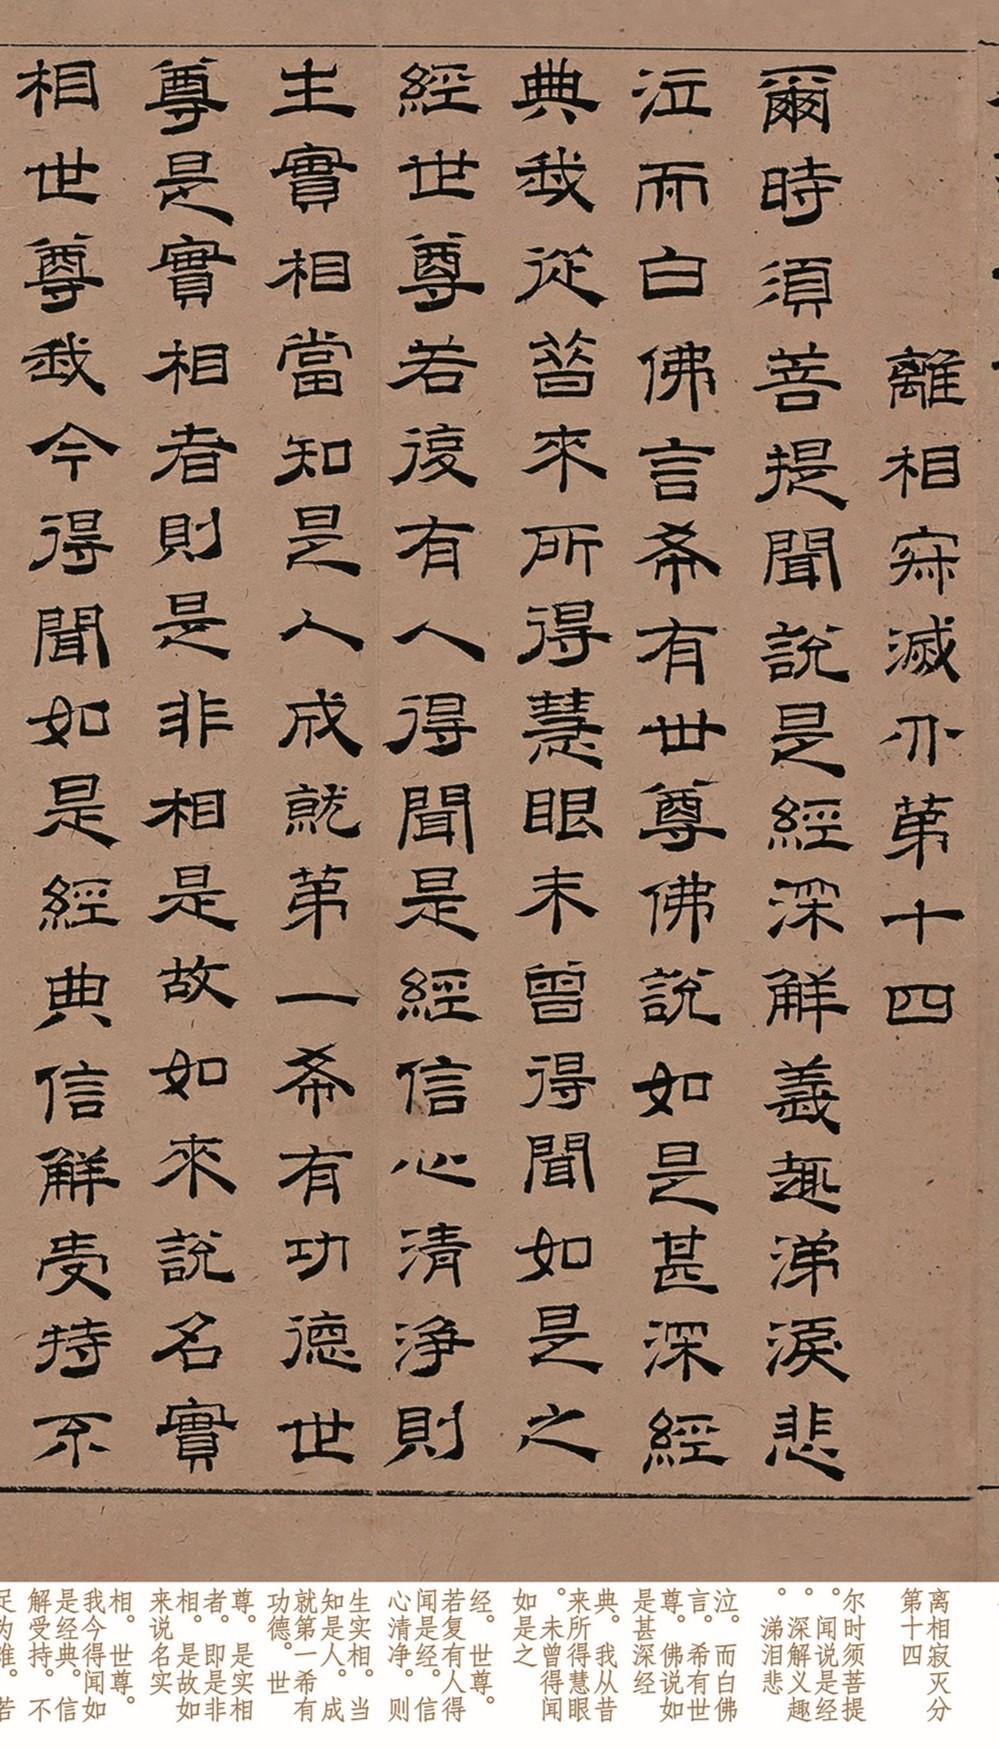 離相寂滅分第十四
爾時須菩提聞說是經深解義趣涕淚悲
泣而白佛言希有世尊佛說如是甚深經
典我從昔來所得慧眼未曾得聞如是之
經世尊若復有人得聞是經信心清淨則
生實相當知是人成就第一希有功德世
尊是實相者則是非相是故如來說名實
相世尊我今得聞如是經典信解受持不
离相寂灭分
第十四
尔时须菩提
。闻说是经
。深解义趣
。涕泪悲
泣。而白佛
言。希有世
尊。佛说如
是甚深经
典。我从昔
来所得慧眼
。未曾得闻
如是之
经。世尊。
若复有人得
闻是经。信
心清净。则
生实相。当
知是人。成
就第一希有
功德。世
尊。是实相
者。即是非
相。是故如
来说名实
相。世尊。
我今得闻如
是经典。信
解受持。不
足为难。若